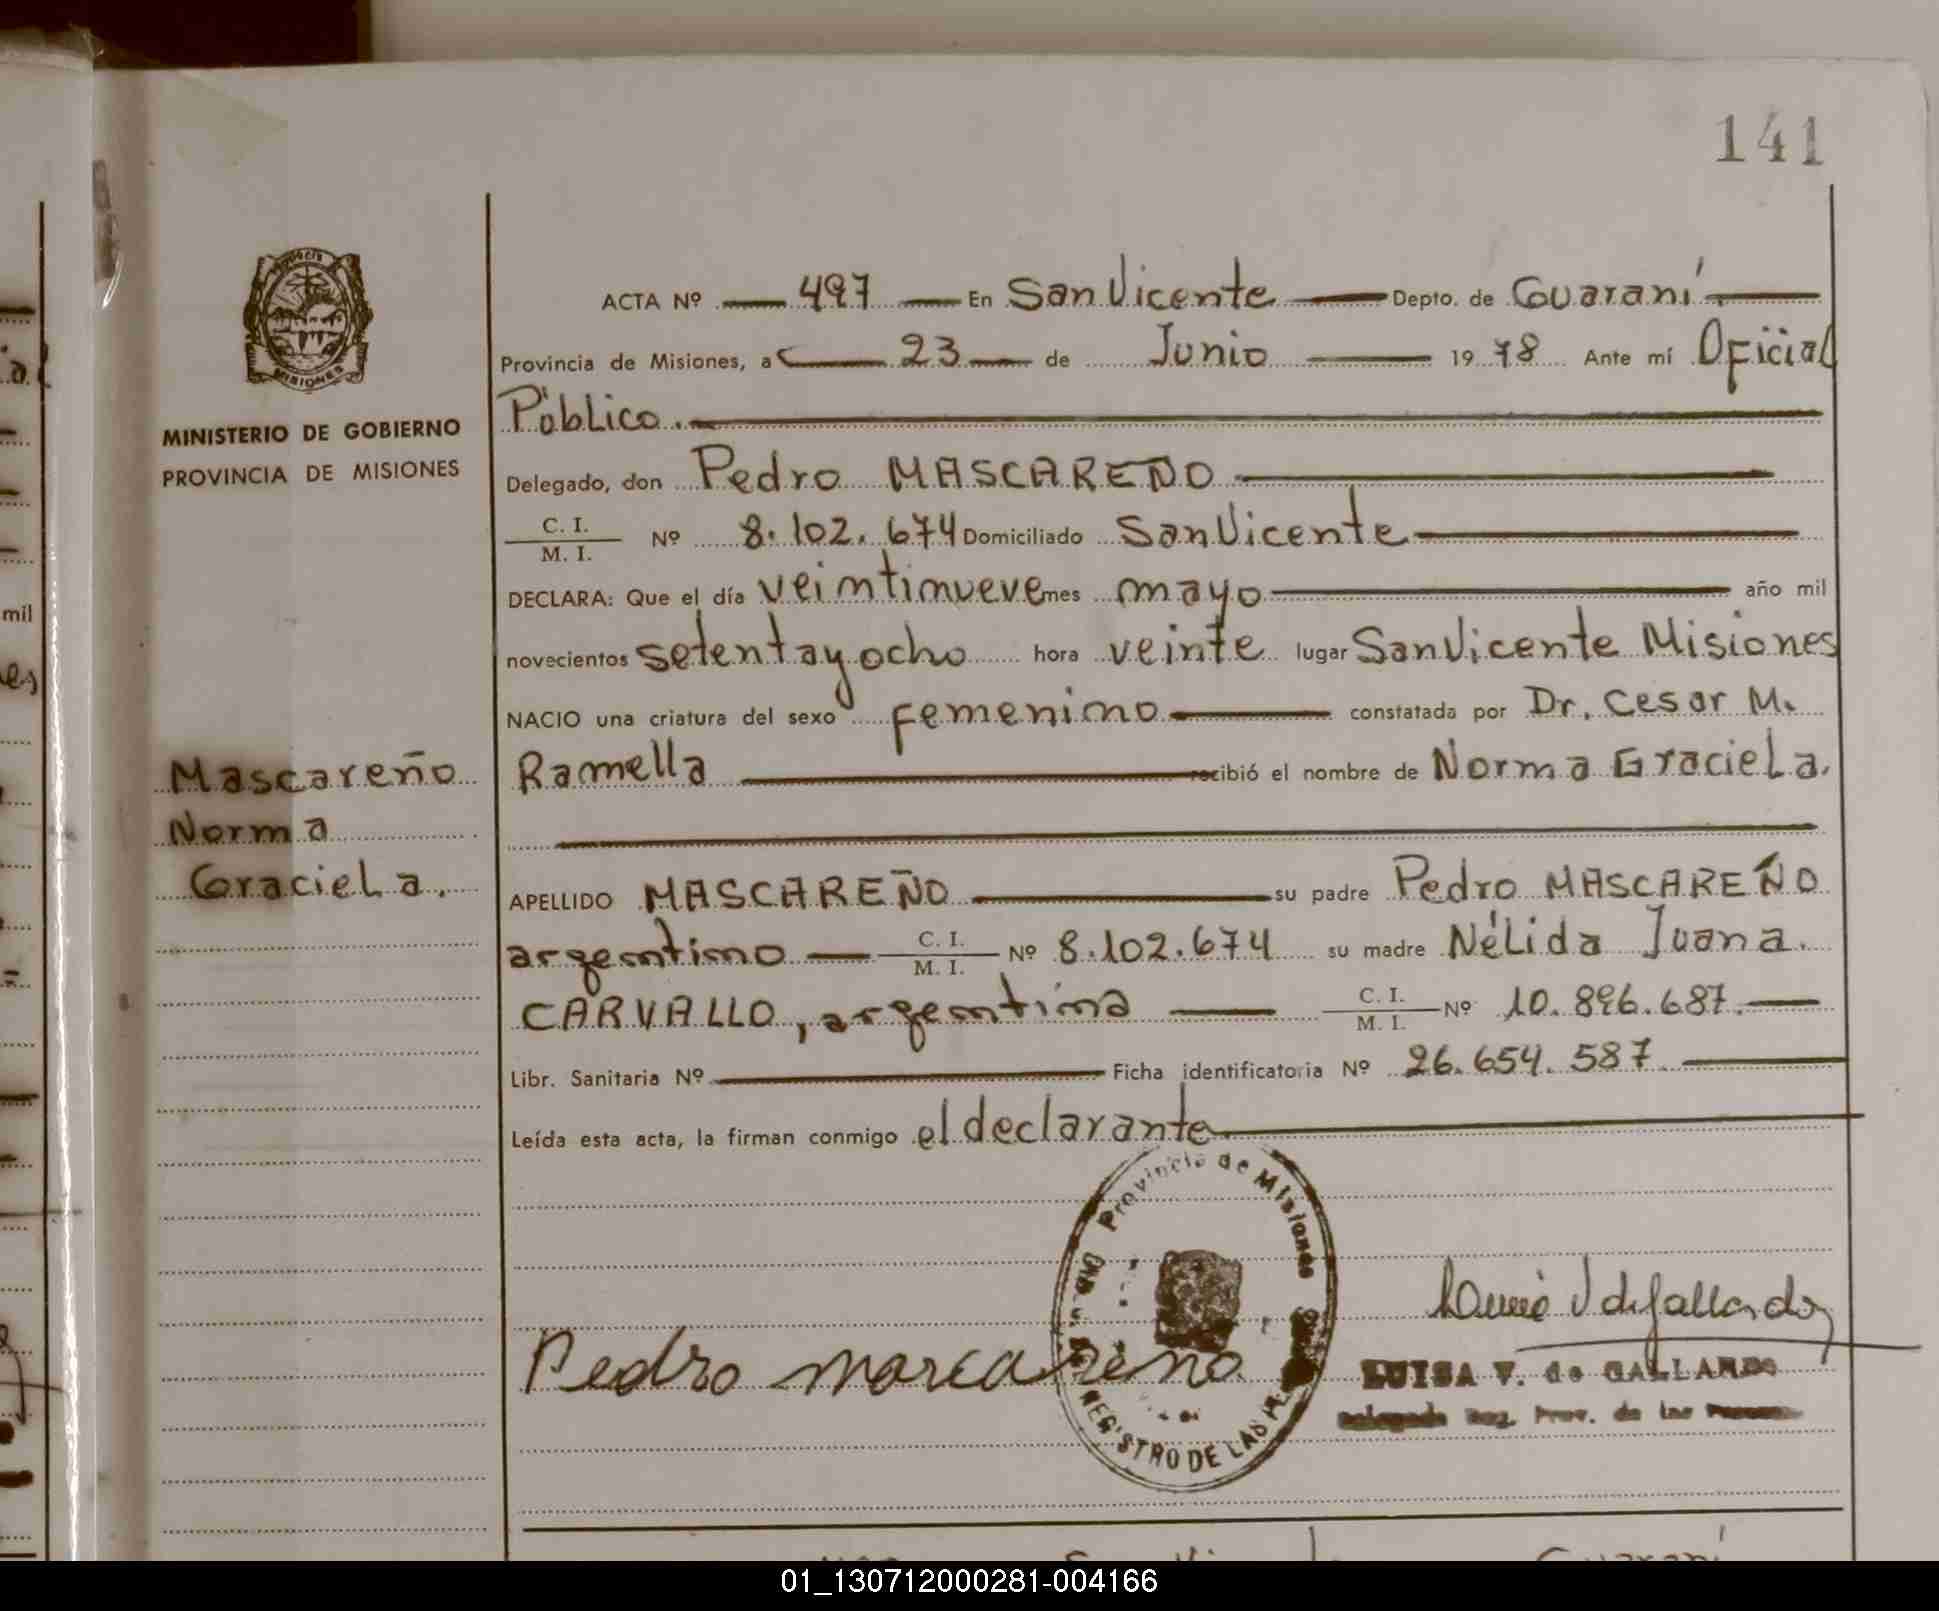 141
ACTA Nº 497 En San Vicente Depto. de Guaraní
Provincia de Misiones, a 23 de Junio 19 78 Ante mí Oficial
Público.
MINISTERIO DE GOBIERNO
PROVINCIA DE MISIONES
Delegado, don Pedro MASCAREÑO
C. I.
M. I.
Nº 8.102.674 Domiciliado San Vicente
DECLARA: Que el día veintinueve mes mayo año mil
novecientos setenta y ocho hora veinte lugar San Vicente Misiones
NACIO una criatura del sexo femenino constatada por Dr. Cesar M.
Ramella recibió el nombre de Norma Graciela.
Mascareño
Norma
Graciela.
APELLIDO MASCAREÑO su padre Pedro MASCAREÑO
argentino C. I. M. I. Nº 8.102.674 su madre Nélida Juana
CARVALLO, argentina C. I. M. I. Nº 10.896.687.
Libr. Sanitaria Nº Ficha identificatoria Nº 26.654.587
Leída esta acta, la firman conmigo el declarante
Provincia de Misiones
REGISTRO DE LAS
Pedro mascareño
LUISA V. de GALLARDO
Delegada Reg. Prov. de las Personas
mil
01_130712000281-004166